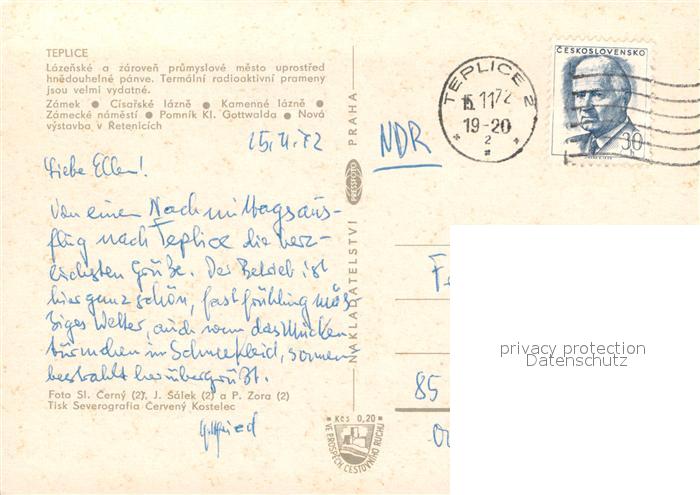 TEPLICE
Lázeňské a zároveň průmyslové město uprostřed
hnědouhelné pánve. Termální radioaktivní prameny
jsou velmi vydatné.
Zámek ● Císařské lázně ● Kamenné lázně ●
Zámecké náměstí ● Pomník Kl. Gottwalda ● Nová
výstavba v Řetenicích
15.11.72
Liebe Ellen!
Von einem Nachmittagsaus-
flug nach Teplice die herz-
lichsten Grüße. Der Betrieb ist
hier ganz schön, fast frühlingmäs-
siges Wetter, auch wenn das Mücken-
türmchen im Schneekleid, sonnen-
bestrahlt herübergrüßt.
Foto Sl. Černý (2), J. Šálek (2) a P. Zora (2)
Tisk Severografia Červený Kostelec
NAKLADATELSTVÍ PRESSFOTO PRAHA
Kčs 0,20
VE PROSPĚCH CESTOVNÍHO RUCHU
NDR
TEPLICE 2
15.11.72
19-20
2
ČESKOSLOVENSKO
30 h
85
privacy protection
Datenschutz